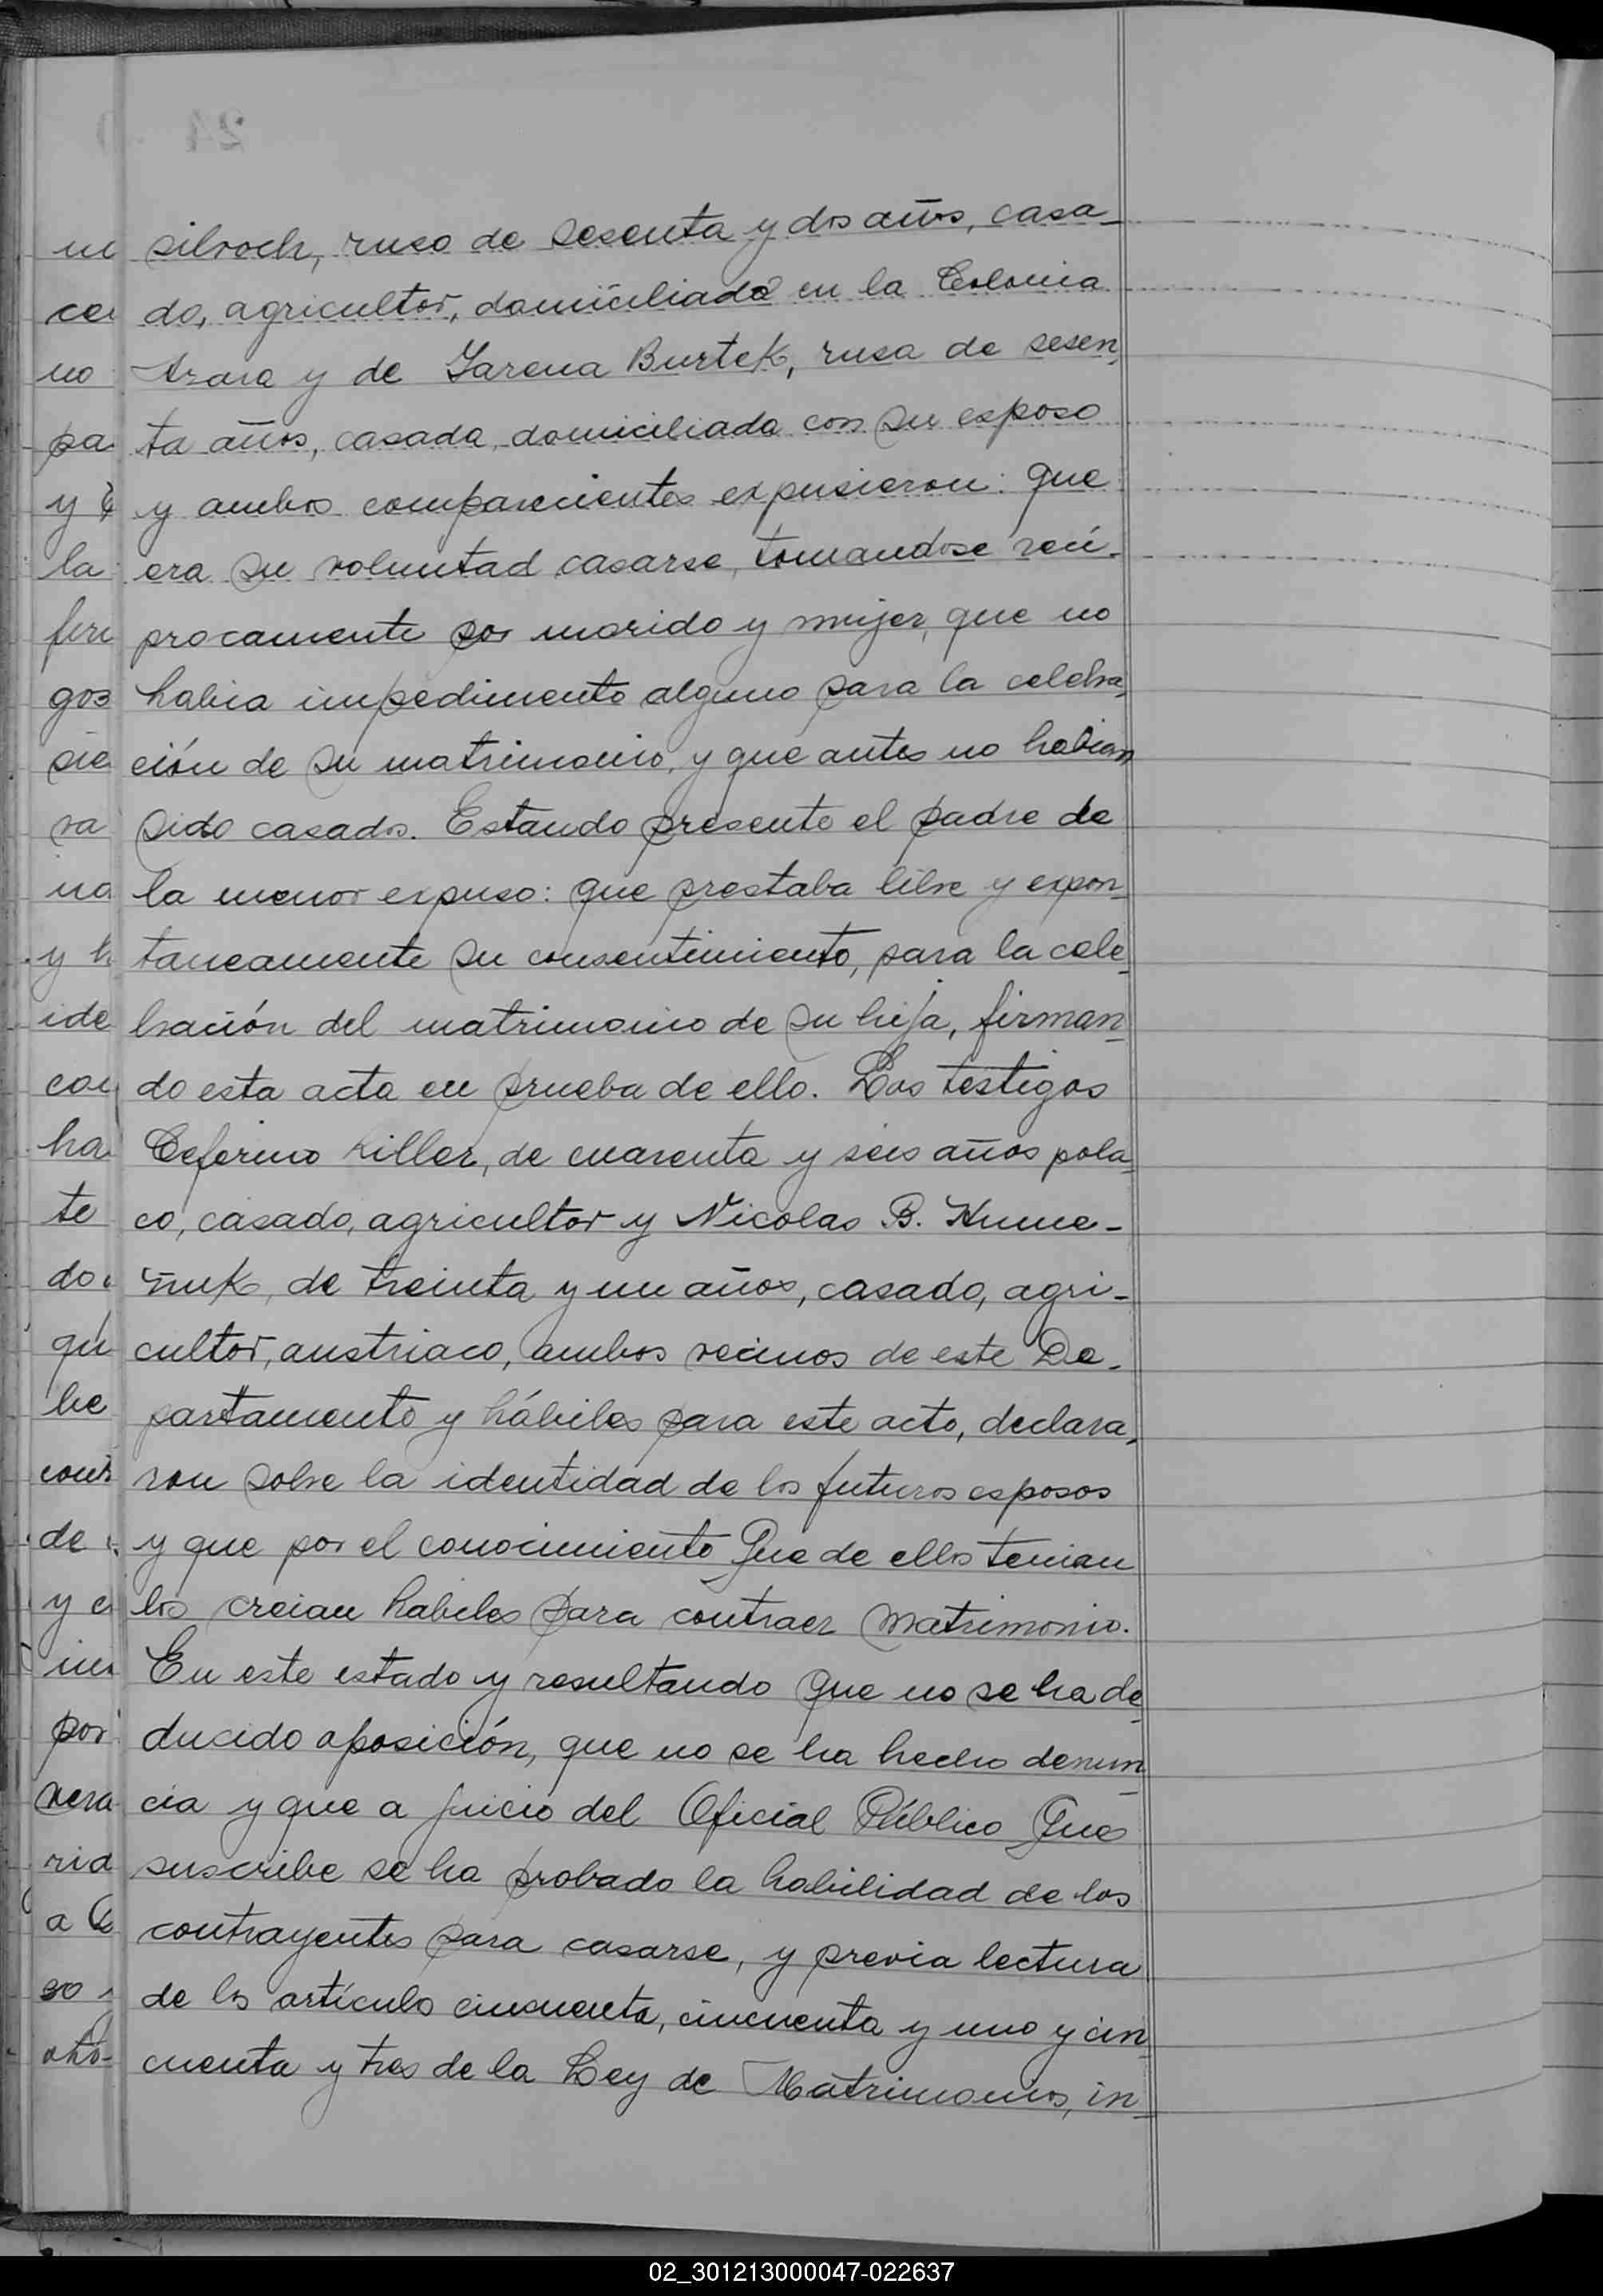 silvoch, ruso de sesenta y dos años, casa-
do, agricultor, domiciliado en la Colonia
Azara y de Yarena Burtek, rusa de sesen-
ta años, casada, domiciliada con su esposo
y ambos comparecientes expusieron: que
era su voluntad casarse, tomandose recí-
procamente por marido y mujer, que no
habia impedimento alguno para la celebra-
ción de su matrimonio, y que antes no habian
sido casados. Estando presente el padre de
la menor expuso: que prestaba libre y expon-
taneamente su consentimiento, para la cele-
bración del matrimonio de su hija, firman-
do esta acta en prueba de ello. Los testigos
Ceferino Hiller, de cuarenta y seis años pola-
co, casado, agricultor y Nicolas B. Hume-
ñuk, de treinta y un años, casado, agri-
cultor, austriaco, ambos vecinos de este De-
partamento y hábiles para este acto, declara-
ron sobre la identidad de los futuros esposos
y que por el conocimiento que de ellos tenian
los creian habiles para contraer matrimonio.
En este estado y resultando que no se ha de-
ducido oposición, que no se ha hecho denun-
cia y que a juicio del Oficial Público que
suscribe se ha probado la habilidad de los
contrayentes para casarse, y previa lectura
de los artículo cincuenta, cincuenta y uno y cin-
cuenta y tres de la Ley de Matrimonios, in-
02_301213000047-022637